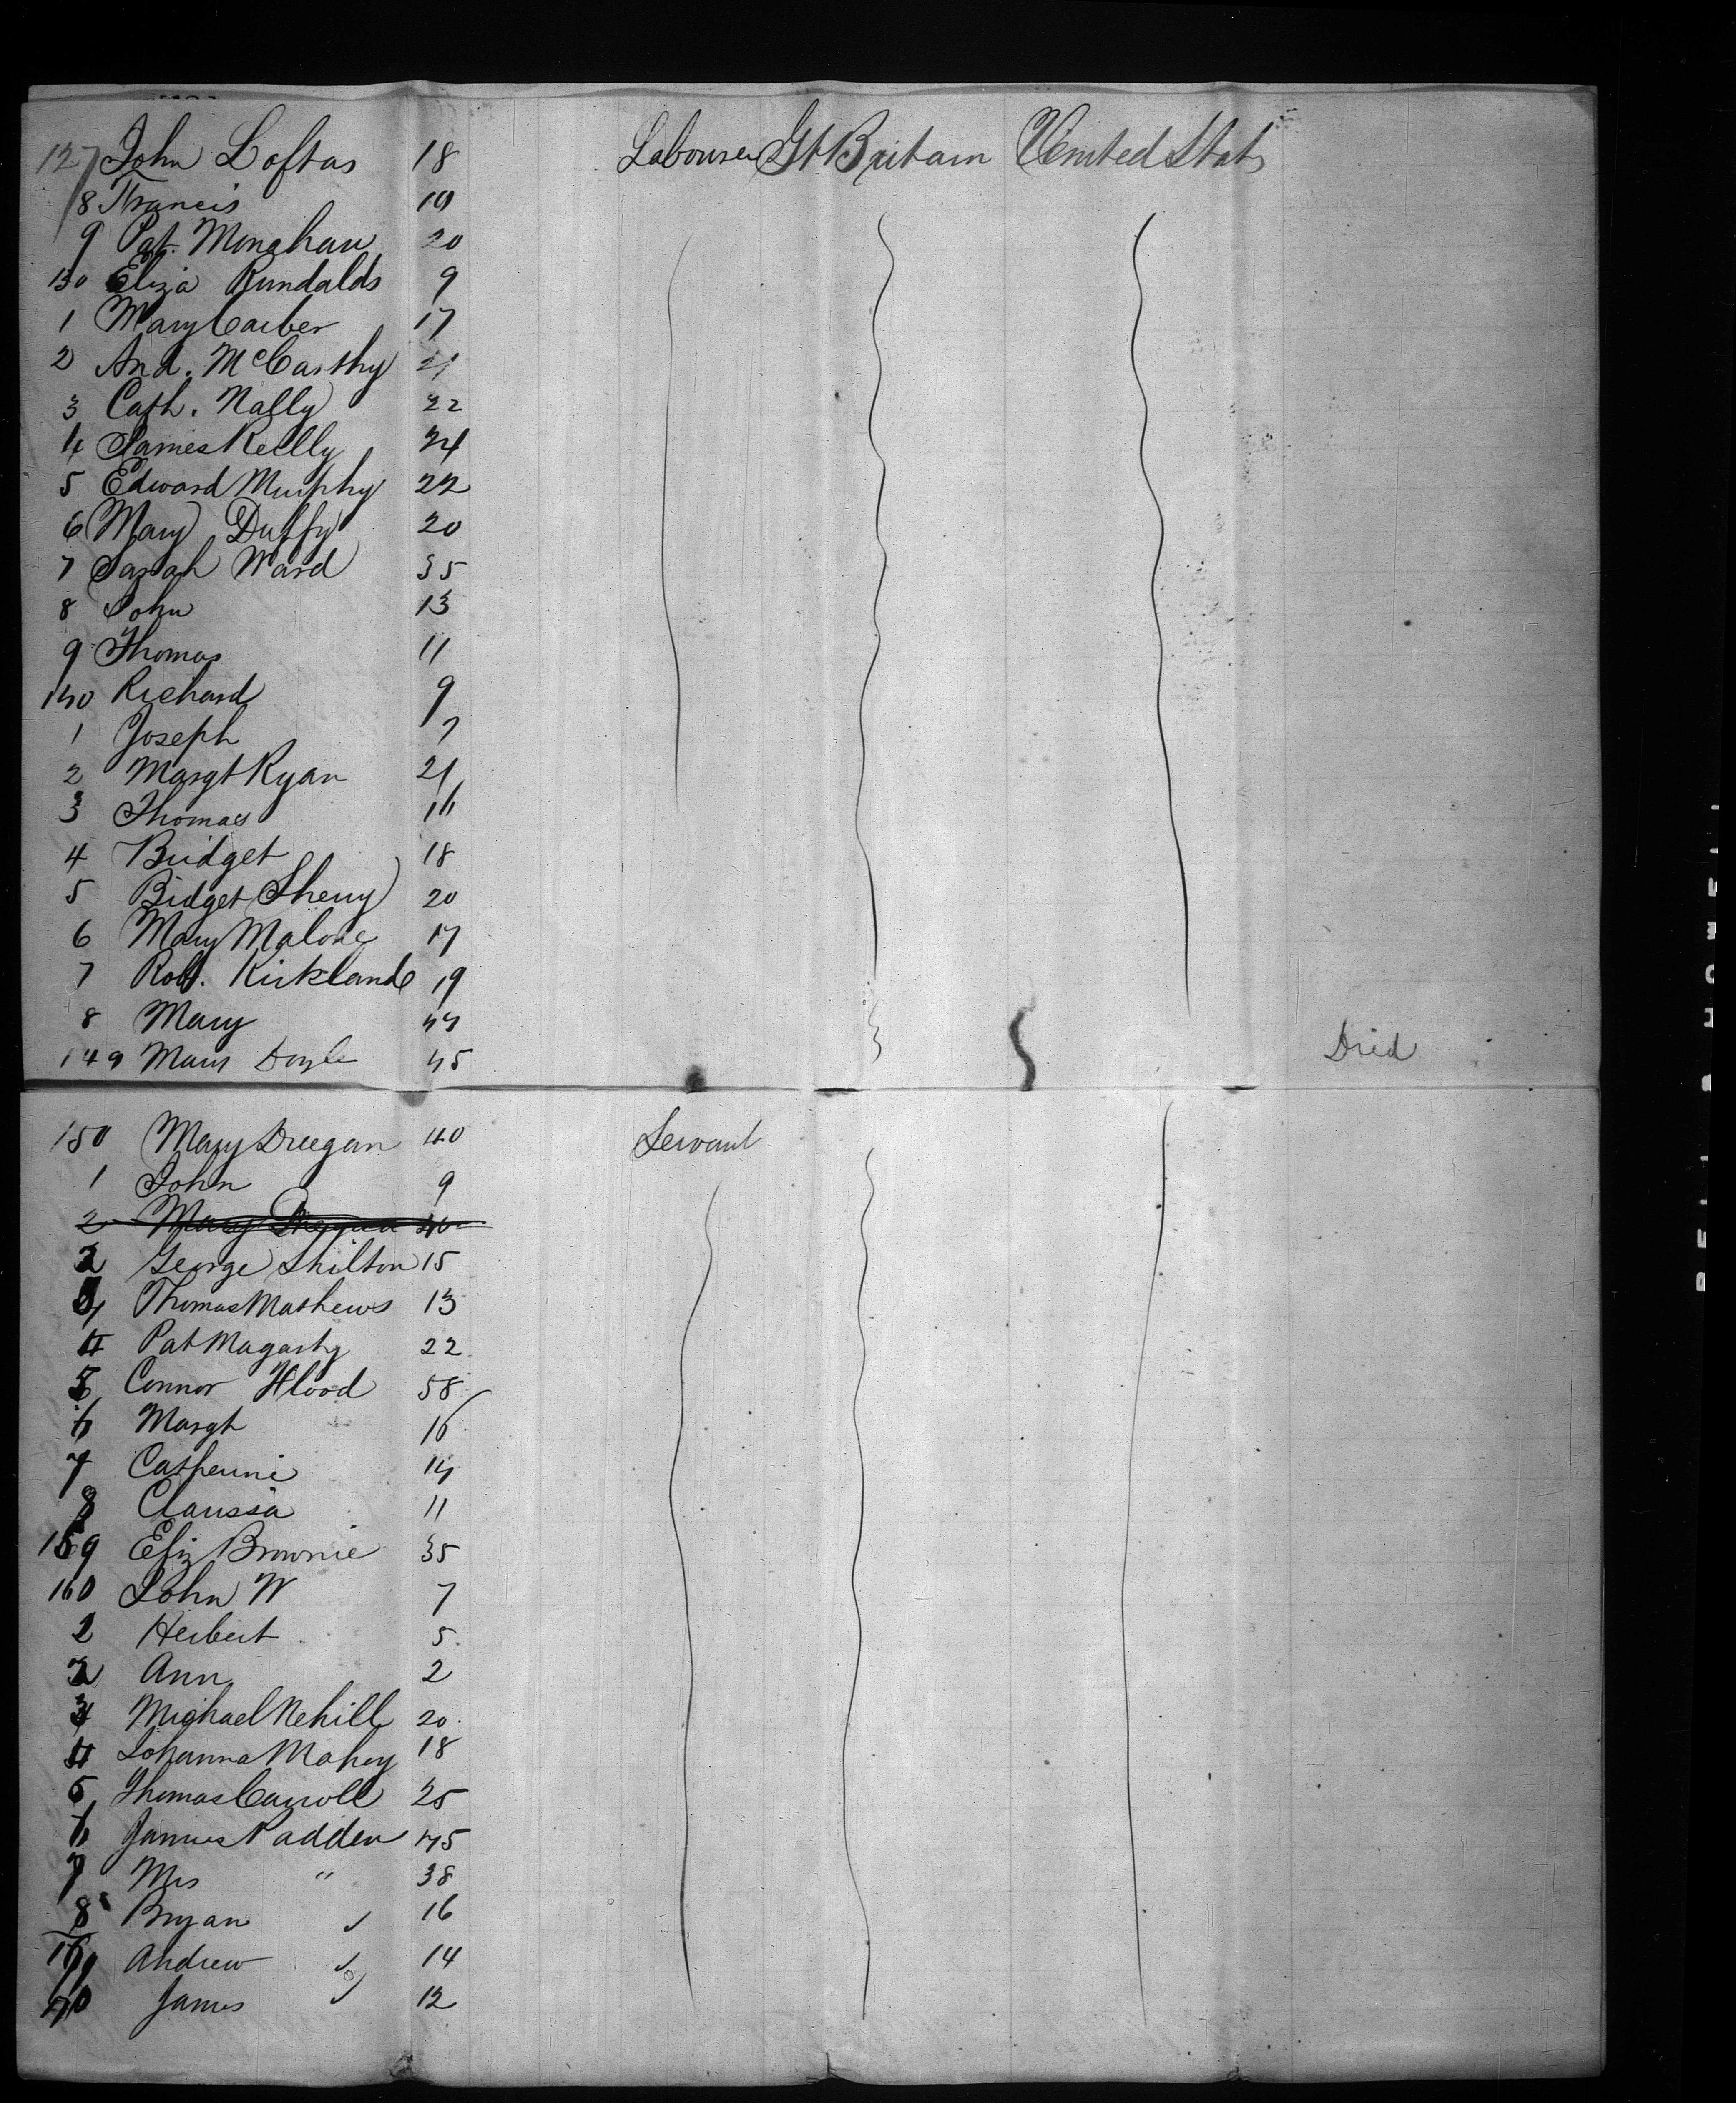 127 John Loftas 18 Labourer Gt Britain United Stats
8 Francis 10
9 Pat. Monahan 20
130 Eliza Rundalds 9
1 Mary Carber 17
2 And. McCarthy 21
3 Cath. Nally 22
4 James Reilly 24
5 Edward Murphy 22
6 Mary Duffy 20
7 Sarah Ward 35
8 John 13
9 Thomas 11
140 Richard 9
1 Joseph 7
2 Margt Ryan 21
3 Thomas 16
4 Bridget 18
5 Bidget Sherry 20
6 Mary Malone 17
7 Robt. Kirkland 19
8 Mary
149 Mary Doyle 45 Died
150 Mary Dreegan 40 Servant
1 John 9
2 Mary 40
2 George Shilton 15
Thomas Mathews 13
4 Pat Magarty 22
5 Connor Flood 58
6 Margt 16
7 Catherine 14
8 Clarissa 11
159 Eliz Brownie 35
160 John W 7
Herbert 5
2 Ann 2
3 Michael Nehill 20
4 Johanna Mahoy 18
5 Thomas Carroll 25
6 James Padden 45
7 Mrs " 38
8 Bryan 16
169 Andrew 14
70 James 12